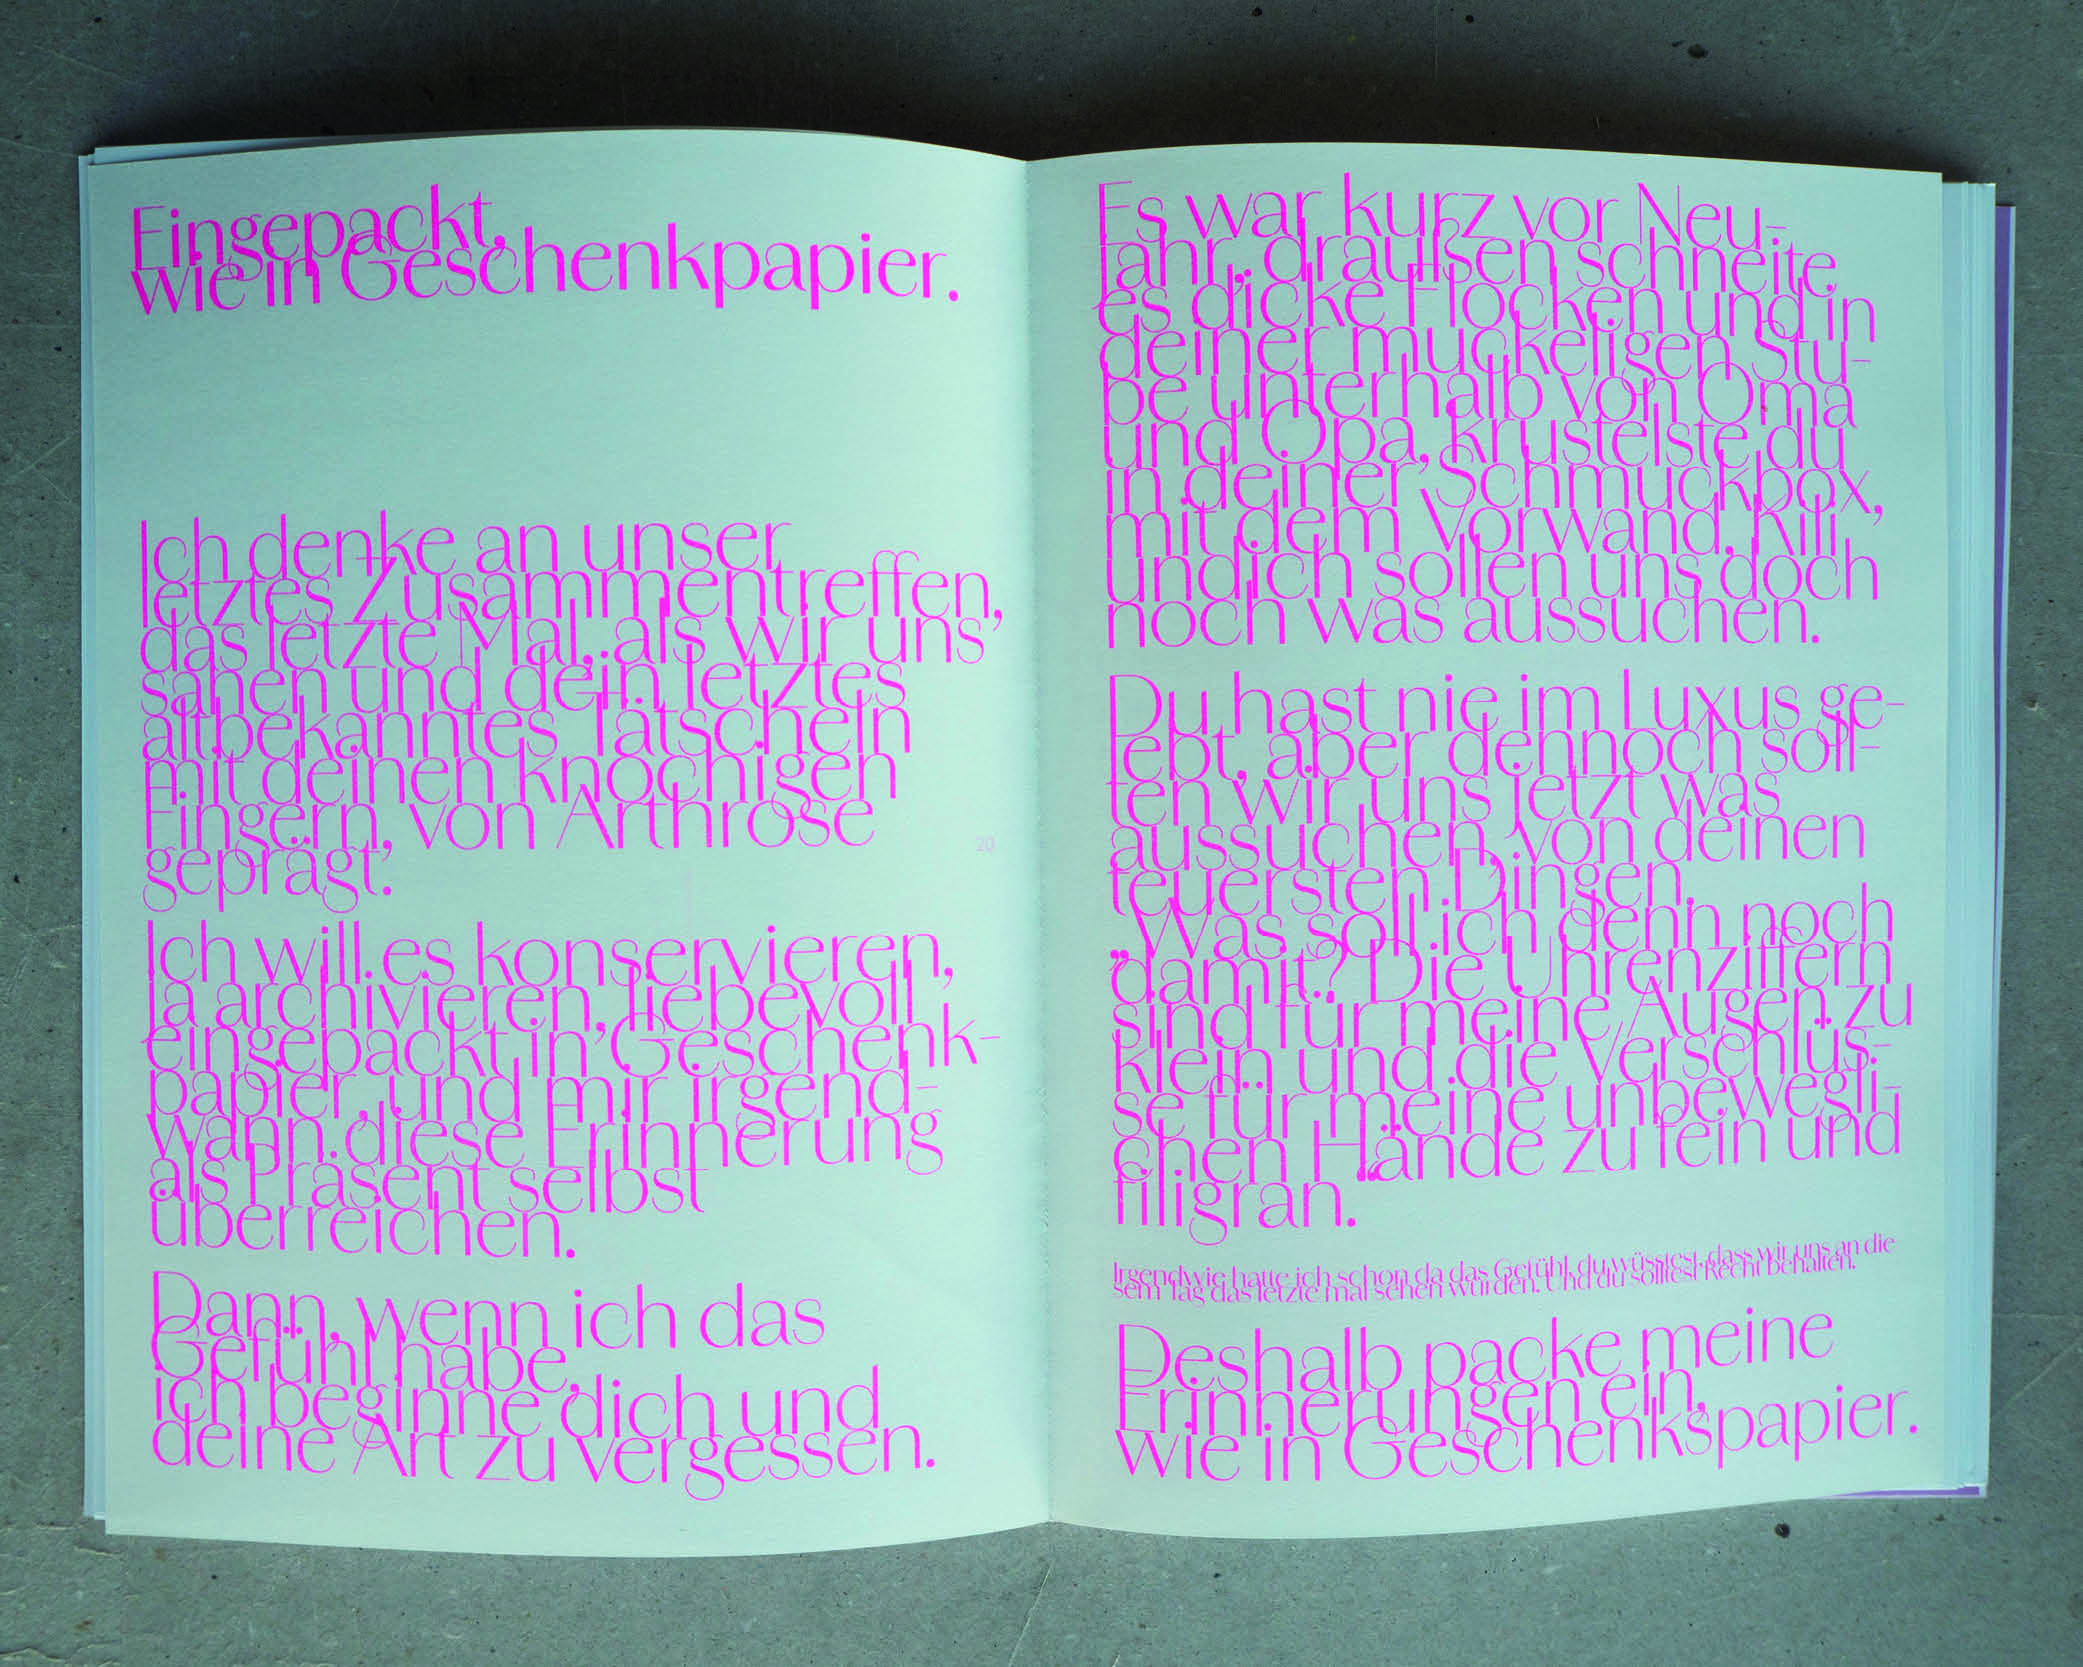 Eingepackt,
wie in Geschenkpapier.
Ich denke an unser
letztes Zusammentreffen,
das letzte Mal, als wir uns
sahen und dein letztes
altbekanntes Tätscheln
mit deinen knochigen
Fingern, von Arthrose
geprägt.
20
Ich will es konservieren,
ja archivieren, liebevoll
eingepackt in Geschenk-
papier, und mir irgend-
wann diese Erinnerung
als Präsent selbst
überreichen.
Dann, wenn ich das
Gefühl habe,
ich beginne dich und
deine Art zu vergessen.
Es war kurz vor Neu-
jahr, draußen schneite
es dicke Flocken und in
deiner muckeligen Stu-
be unterhalb von Oma
und Opa, krustelste du
in deiner Schmuckbox,
mit dem Vorwand, Kili
und ich sollen uns doch
noch was aussuchen.
Du hast nie im Luxus ge-
lebt, aber dennoch soll-
ten wir uns jetzt was
aussuchen, von deinen
teuersten Dingen.
„Was soll ich denn noch
damit? Die Uhrenziffern
sind für meine Augen zu
klein und die Verschlüs-
se für meine unbewegli-
chen Hände zu fein und
filigran.“
Irgendwie hatte ich schon da das Gefühl, du wüsstest, dass wir uns an die
sem Tag das letzte mal sehen würden. Und du solltest Recht behalten.
Deshalb packe meine
Erinnerungen ein,
wie in Geschenkspapier.